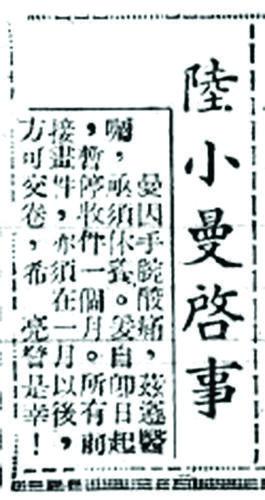 陸小曼啓事
曼因手腕酸痛,茲遵醫
囑,亟須休養。爰自即日起
,暫停收件一個月。所有前
接畫件,亦須在一月以後,
方可交卷,希 亮詧是幸!